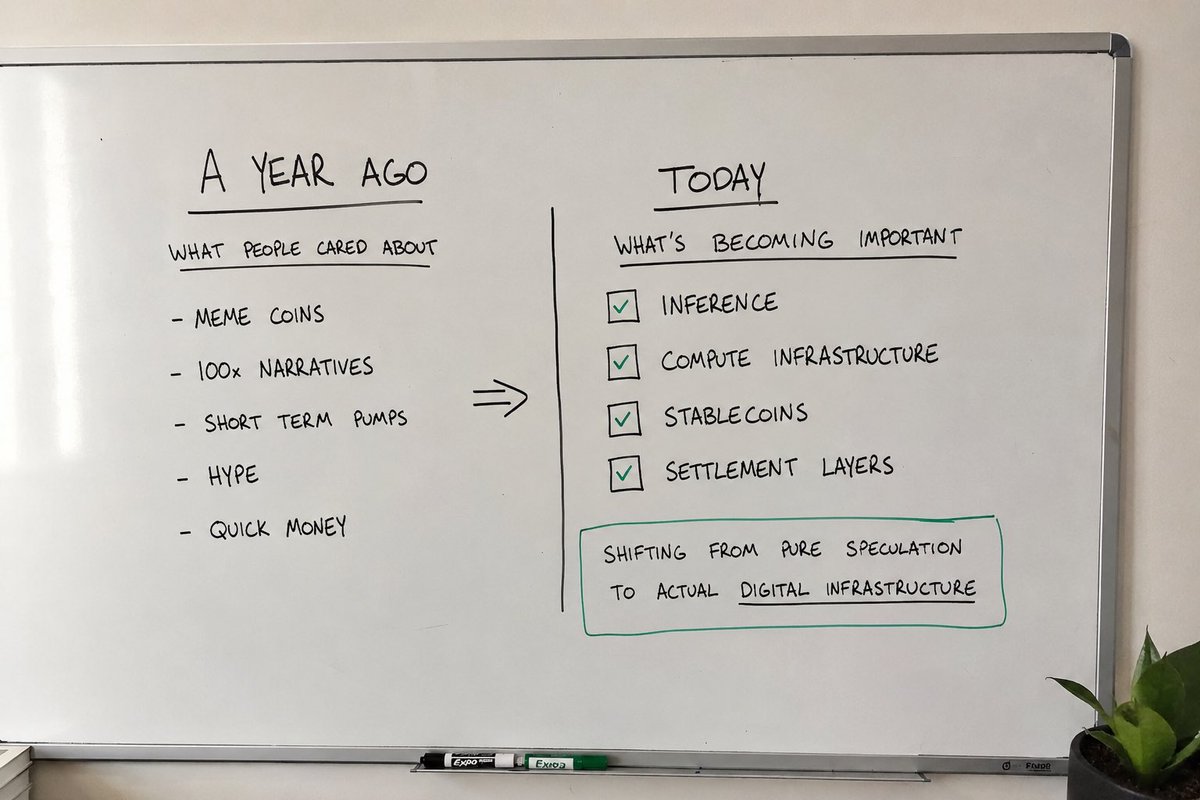 A YEAR AGO
WHAT PEOPLE CARED ABOUT
- MEME COINS
- 100x NARRATIVES
- SHORT TERM PUMPS
- HYPE
- QUICK MONEY
TODAY
WHAT'S BECOMING IMPORTANT
INFERENCE
COMPUTE INFRASTRUCTURE
STABLECOINS
SETTLEMENT LAYERS
SHIFTING FROM PURE SPECULATION
TO ACTUAL DIGITAL INFRASTRUCTURE
EXPO